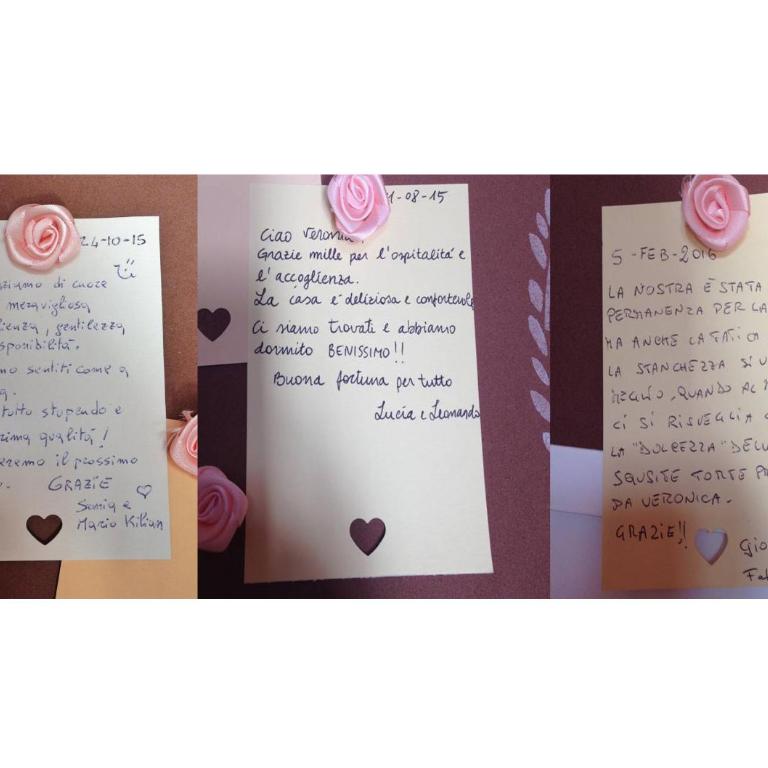 24-10-15
di cuore
meravigliosa
gentilezza
sentiti come a
tutto stupendo e
qualità!
il prossimo
GRAZIE
Sonia e
Mario Kilian
1-08-15
Ciao Veronica!
Grazie mille per l'ospitalità e
l'accoglienza.
La casa è deliziosa e confortevole
Ci siamo trovati e abbiamo
dormito BENISSIMO!!
Buona fortuna per tutto
Lucia e Leonardo
5-FEB-2016
LA NOSTRA È STATA
PERMANENZA PER LA
MA ANCHE LA FATICA
LA STANCHEZZA SI
MEGLIO, QUANDO AL
CI SI RISVEGLIA
LA "DOLCEZZA"
SQUSITE TORTE
DA VERONICA.
GRAZIE!!